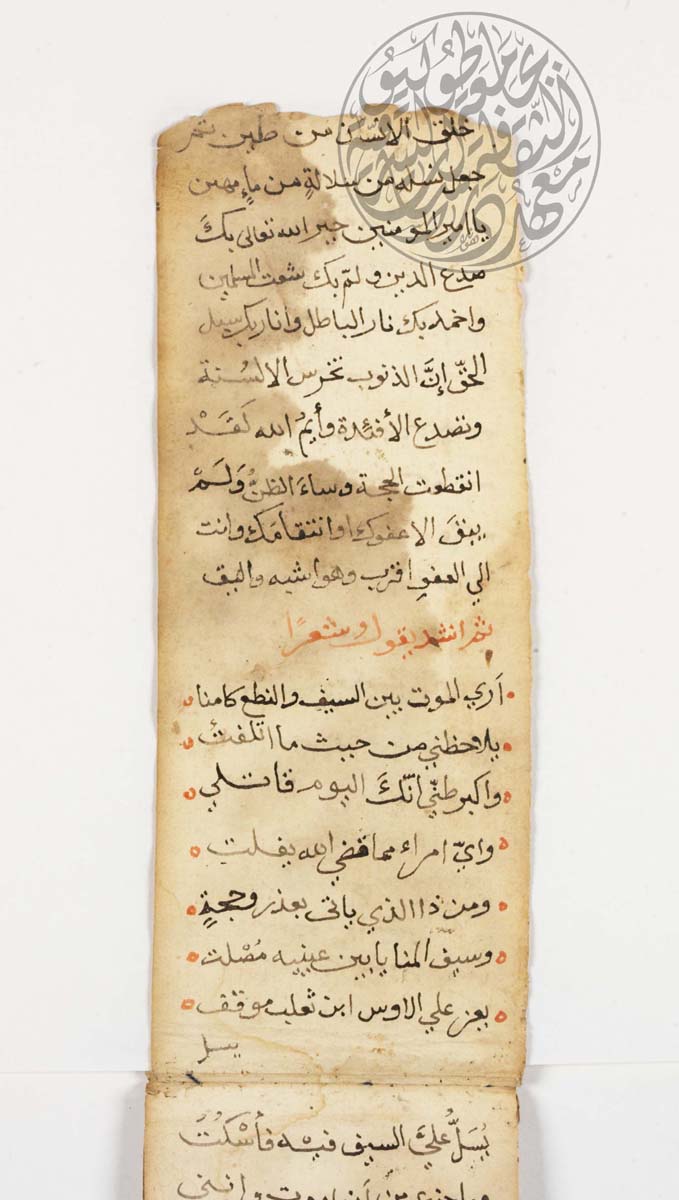 خلق الانسن من طين ثم
جعل نسله من سلالةٍ من ماءٍ مهين
يا امير المومنين جبر الله تعالى بكَ
صدع الدين ولمّ بك شعث المسلمين
واخمد بك نار الباطل وانار بك سبيل
الحقّ إنَّ الذنوب تخرس الالسُنة
وتصدع الأفئدة وأيمُ الله لَقَدْ
انقطعت الحجة وساءَ الظنُّ وَلَمْ
يبقَ الا عفوك او انتقامك وانت
الي العفوِ اقرب وهو اشبه واليق
ثم انشد يقول شعرًا
أري الموت بين السيف والنطع كامنا
يلاحظني من حيث ما اتلفتُ
واكبر ظنّي أنّكَ اليوم قاتلي
وايّ امراء مما قضي الله يفلت
ومن ذا الذي ياتى بعذر وحجةٍ
وسيف المنايا بين عينيه مُصْلت
يعز علي الاوس ابن ثعلب موقف
يسل
يُسَلُّ عليَّ السيف فيه فأسْكُتُ